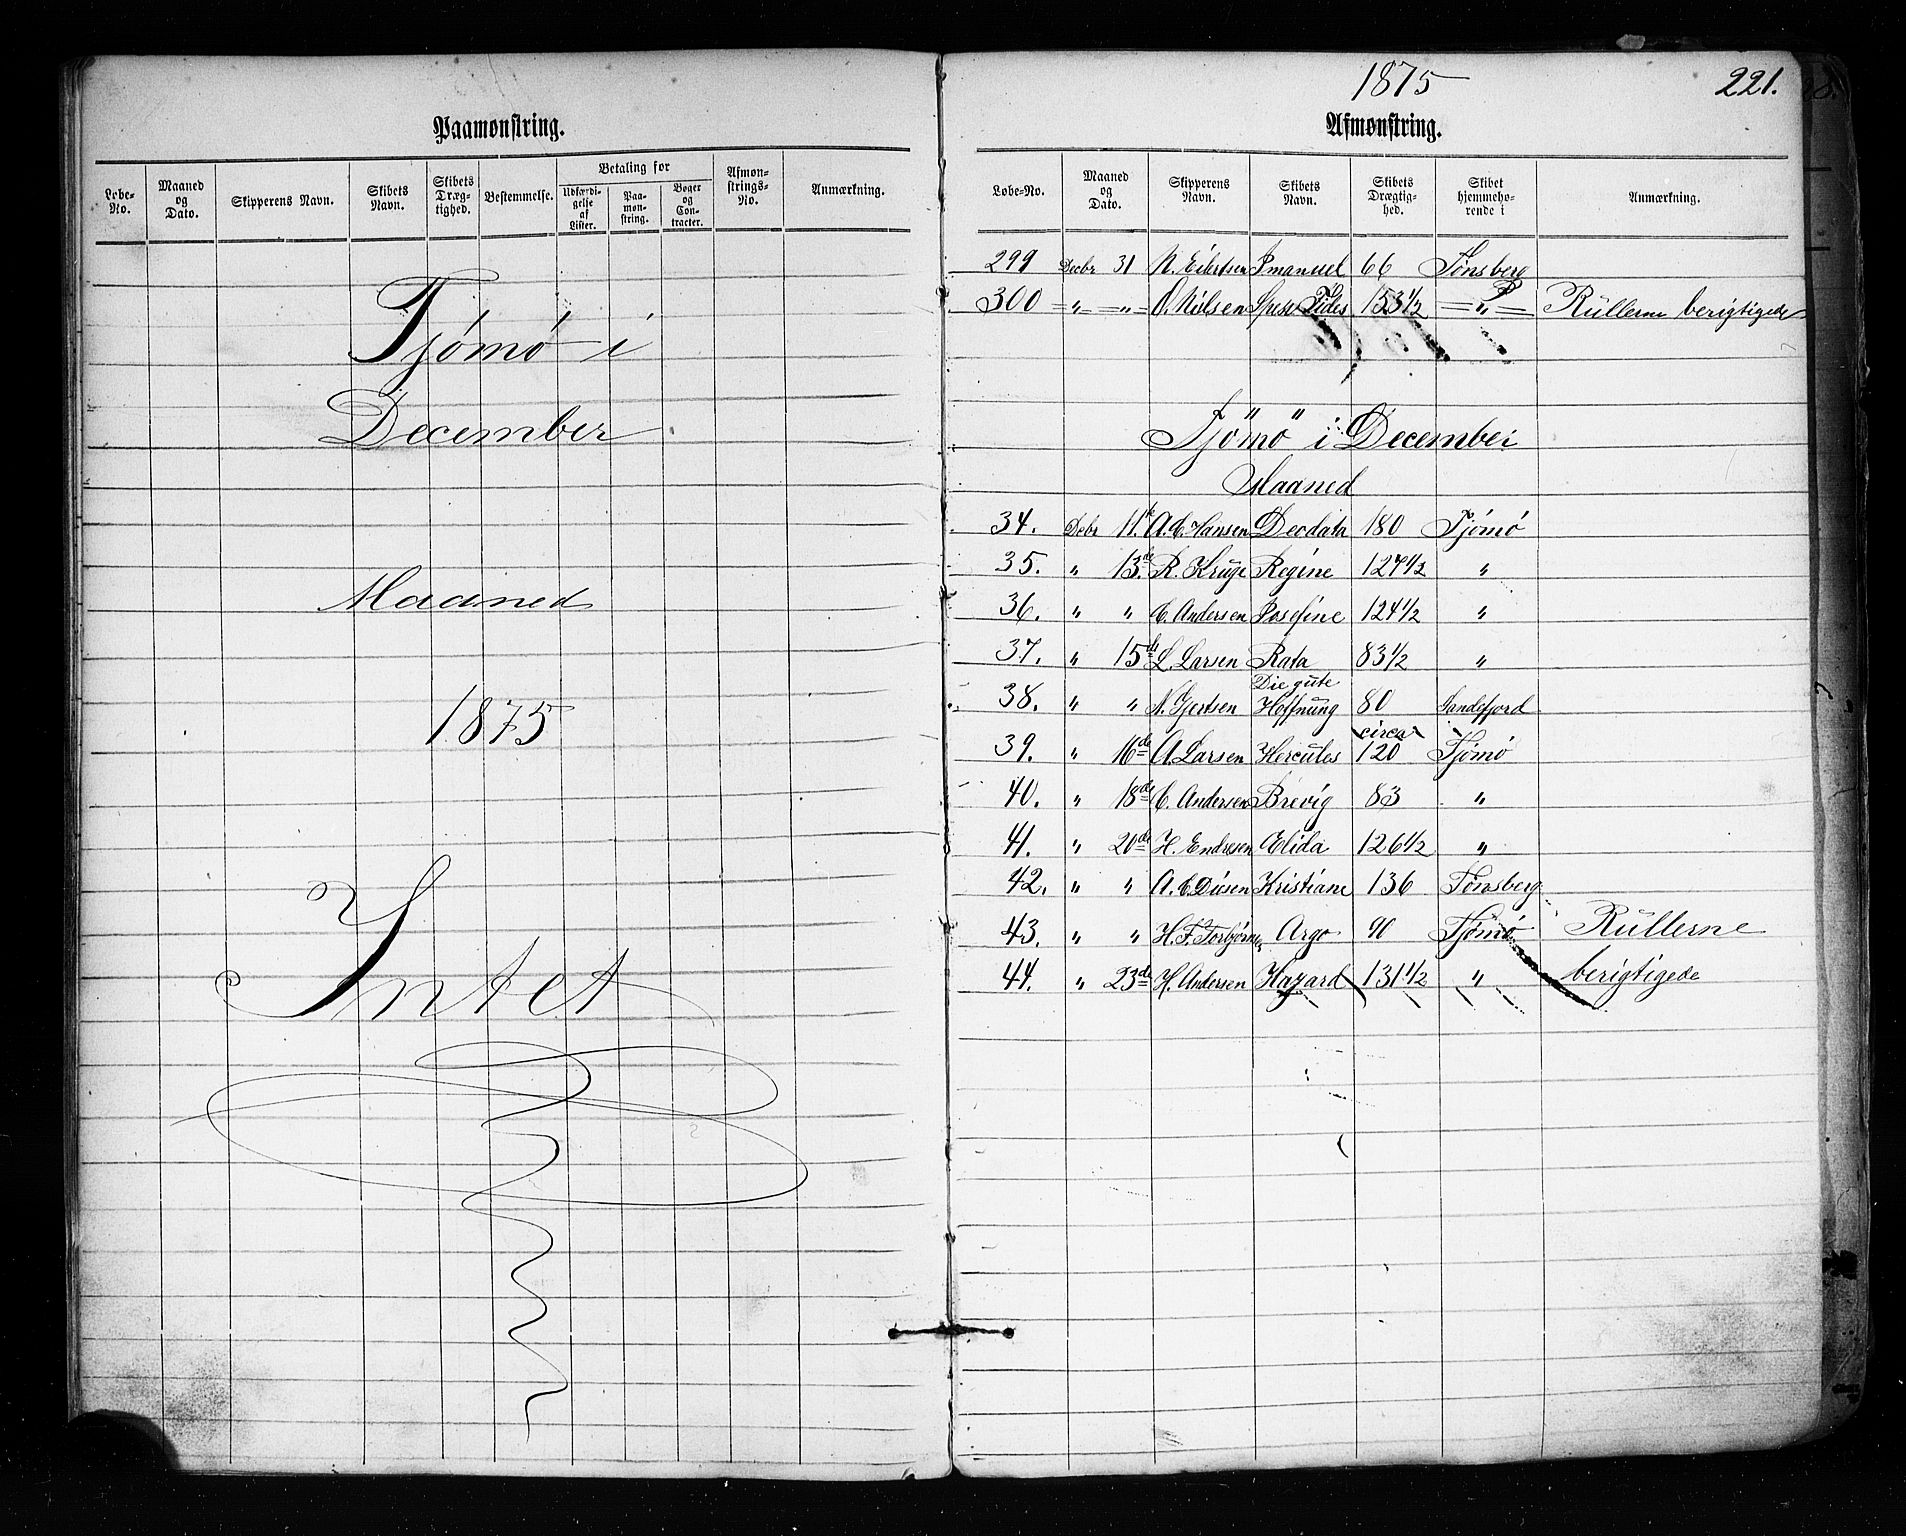 Paamønstring.
Løbe-No. | Maaned og Dato. | Skipperens Navn. | Skibets Navn. | Skibets Dræg-tighed. | Bestemmelse. | Betaling for | Udfærdi-gelse af Lister. | Paa-møn-string. | Bøger og Con-tracter. | Afmøn-strings-No. | Anmærkning.
Tjømø i
December
Maaned
1875
Intet
1875
221.
Afmønstring.
Løbe-No. | Maaned og Dato. | Skipperens Navn. | Skibets Navn. | Skibets Drægtig-hed. | Skibet hjemmehø-rende i | Anmærkning.
299 Decbr 31 N. Eilertsen Imanuel 66 Tønsberg
300 = „ = „ = O. Nilsen Spes & Fides 153 1/2 = „ = Rullerne berigtigede
Tjømø i December
Maaned
34. Decbr 11.te A. C. Hansen Deodata 180 Tjømø
35. „ 13.de R. Kruge Regine 127 1/2 „
36. „ „ C. Andersen Josefine 124 1/2 „
37. „ 15de L. Larsen Rata 83 1/2 „
38. „ „ N. Gjertsen Die gute Hoffnung 80 Sandefjord
39. „ 16de A. Larsen Hercules circa 120 Tjømø
40. „ 18de C. Andersen Brevig 83 „
41. „ 20de H. Endresen Elida 126 1/2 „
42. „ „ A. C. Kristiane 136 Tønsberg
43. „ „ H. F. Torbjørnsen Argo 90 Tjømø Rullerne
44. „ 23de H. Andersen Hazard 131 1/2 „ berigtigede